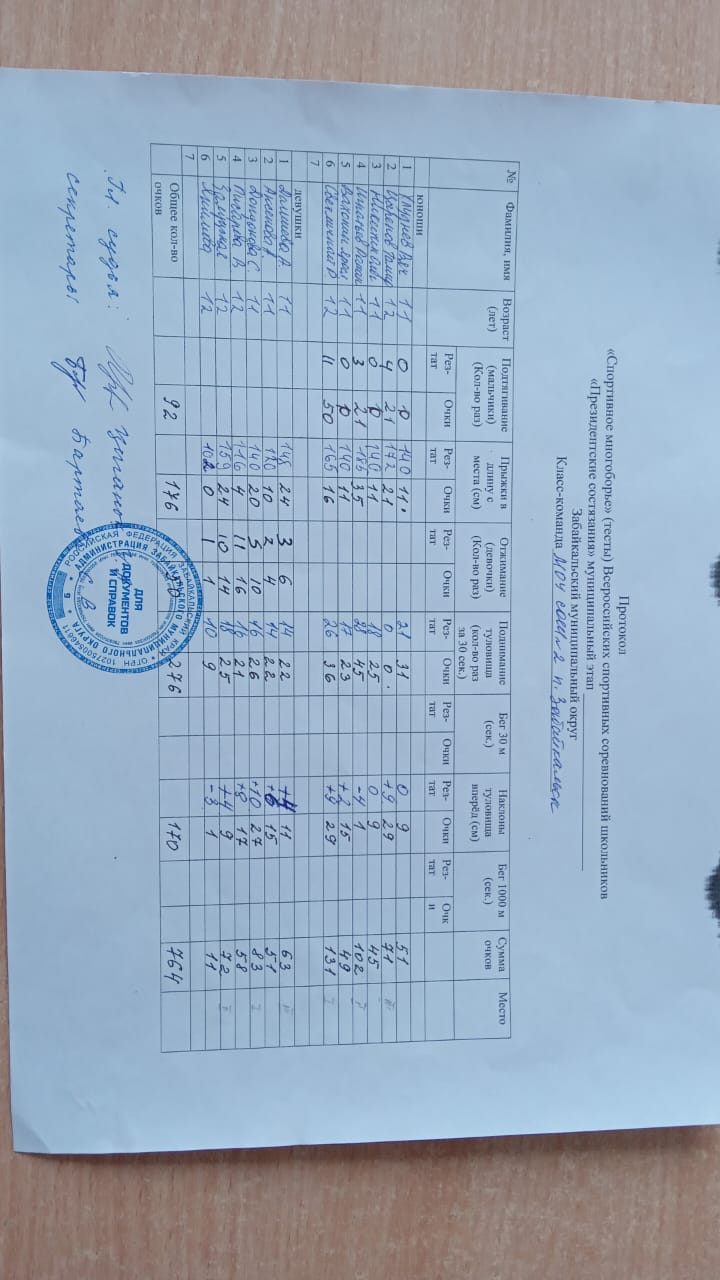 Протокол
«Спортивное многоборье» (тесты) Всероссийских спортивных соревнований школьников
«Президентские состязания» муниципальный этап
Забайкальский муниципальный округ
Класс-команда МОУ СОШ №2 п. Забайкальск
№ Фамилия, имя Возраст (лет) Подтягивание (мальчики) (Кол-во раз) Прыжки в длину с места (см) Отжимание (девочки) (Кол-во раз) Поднимание туловища (кол-во раз за 30 сек.) Бег 30 м (сек.) Наклоны туловища вперёд (см) Бег 1000 м (сек.) Сумма очков Место
Рез-тат Очки Рез-тат Очки Рез-тат Очки Рез-тат Очки Рез-тат Очки Рез-тат Очки Рез-тат Очки
юноши
1 11 0 0 140 11 21 31 0 9 51
2 12 4 21 172 21 0 0 +9 29 71 III
3 Никитин 11 0 0 140 11 18 25 0 9 45
4 Игнатьев Роман 11 3 21 185 35 28 45 -4 1 102
5 11 0 0 140 11 17 23 15 49
6 12 11 50 165 16 26 36 +9 29 131 I
7
девушки
1 А 11 148 24 3 6 14 22 +4 11 63
2 Аксенова 11 120 10 2 4 14 22 +6 15 51
3 С 11 140 20 5 10 16 26 +10 27 83 I
4 В 12 116 4 11 16 16 21 +8 17 58
5 12 159 24 10 14 18 25 +4 9 72 II
6 12 102 0 1 1 10 9 -3 1 11
7
Общее кол-во очков 92 176 50 276 170 764
Гл. судья:
секретарь
РОССИЙСКАЯ ФЕДЕРАЦИЯ ЗАБАЙКАЛЬСКИЙ КРАЙ
АДМИНИСТРАЦИЯ ЗАБАЙКАЛЬСКОГО МУНИЦИПАЛЬНОГО ОКРУГА
ДЛЯ
ДОКУМЕНТОВ
И СПРАВОК